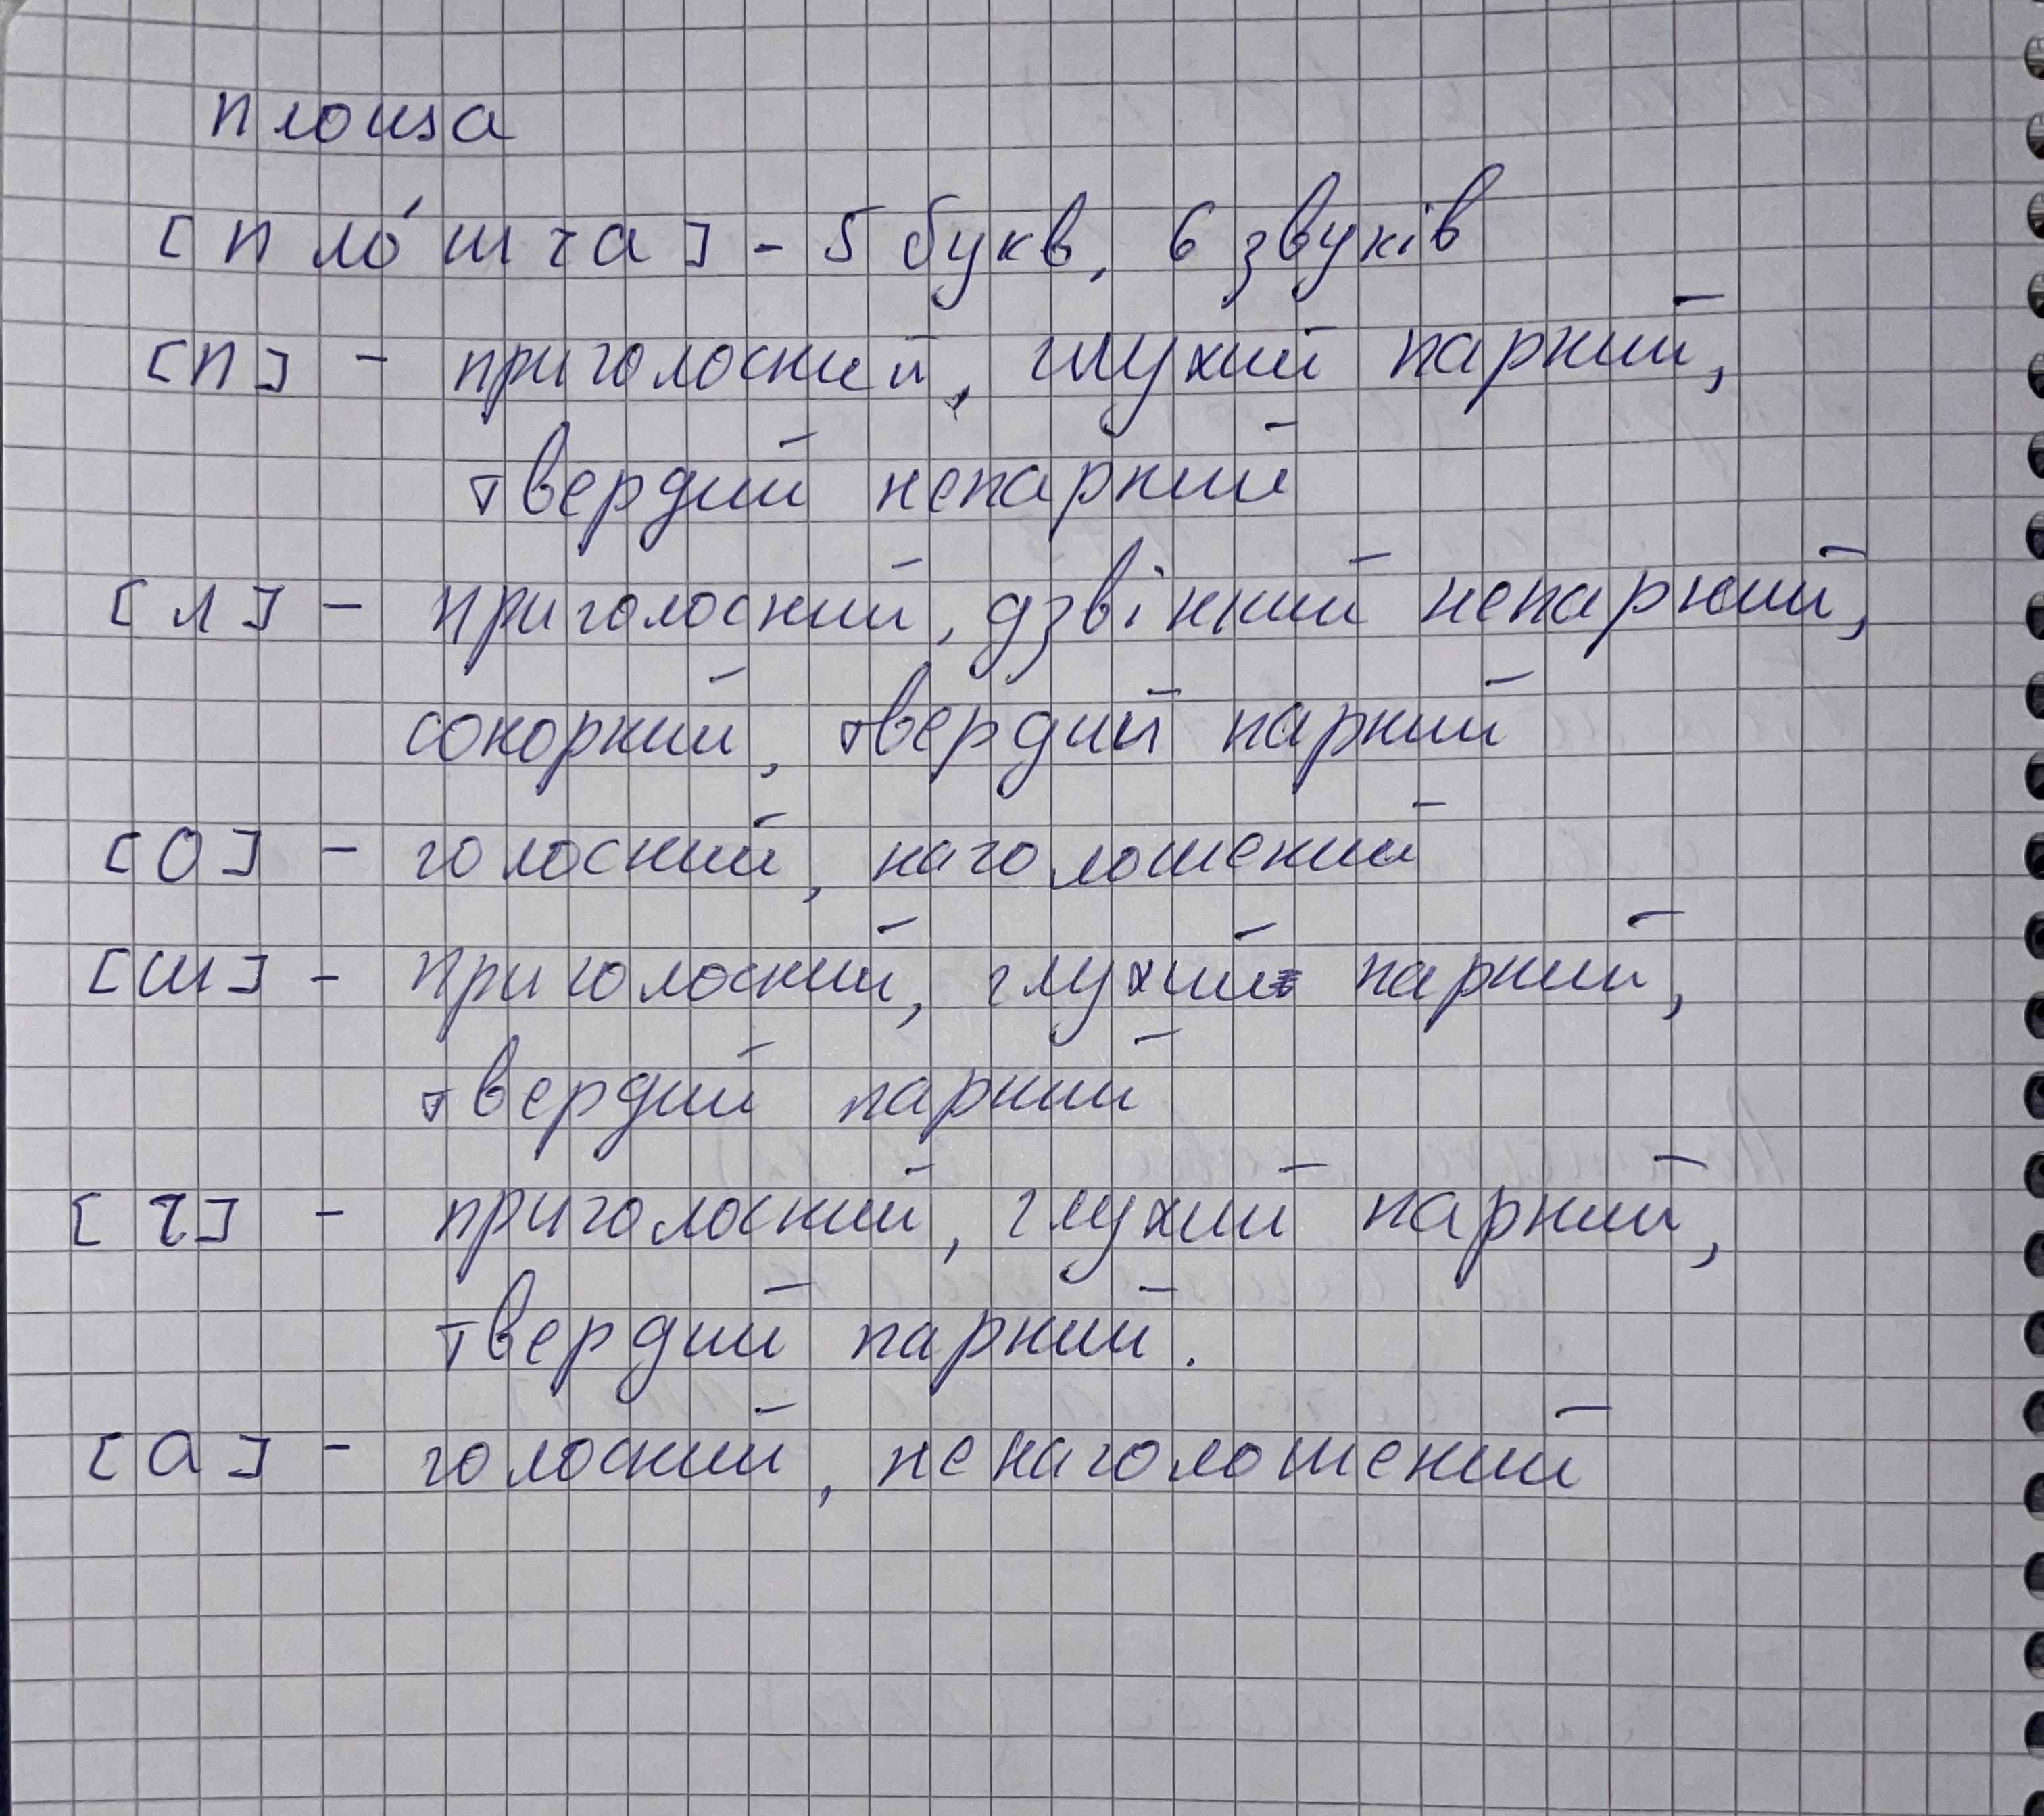 площа
[пло́шча] - 5 букв, 6 звуків
[п] - приголосний, глухий парний,
твердий непарний
[л] - приголосний, дзвінкий непарний,
сонорний, твердий парний
[о] - голосний, наголошений
[ш] - приголосний, глухий парний,
твердий парний
[ч] - приголосний, глухий парний,
твердий парний.
[а] - голосний, ненаголошений